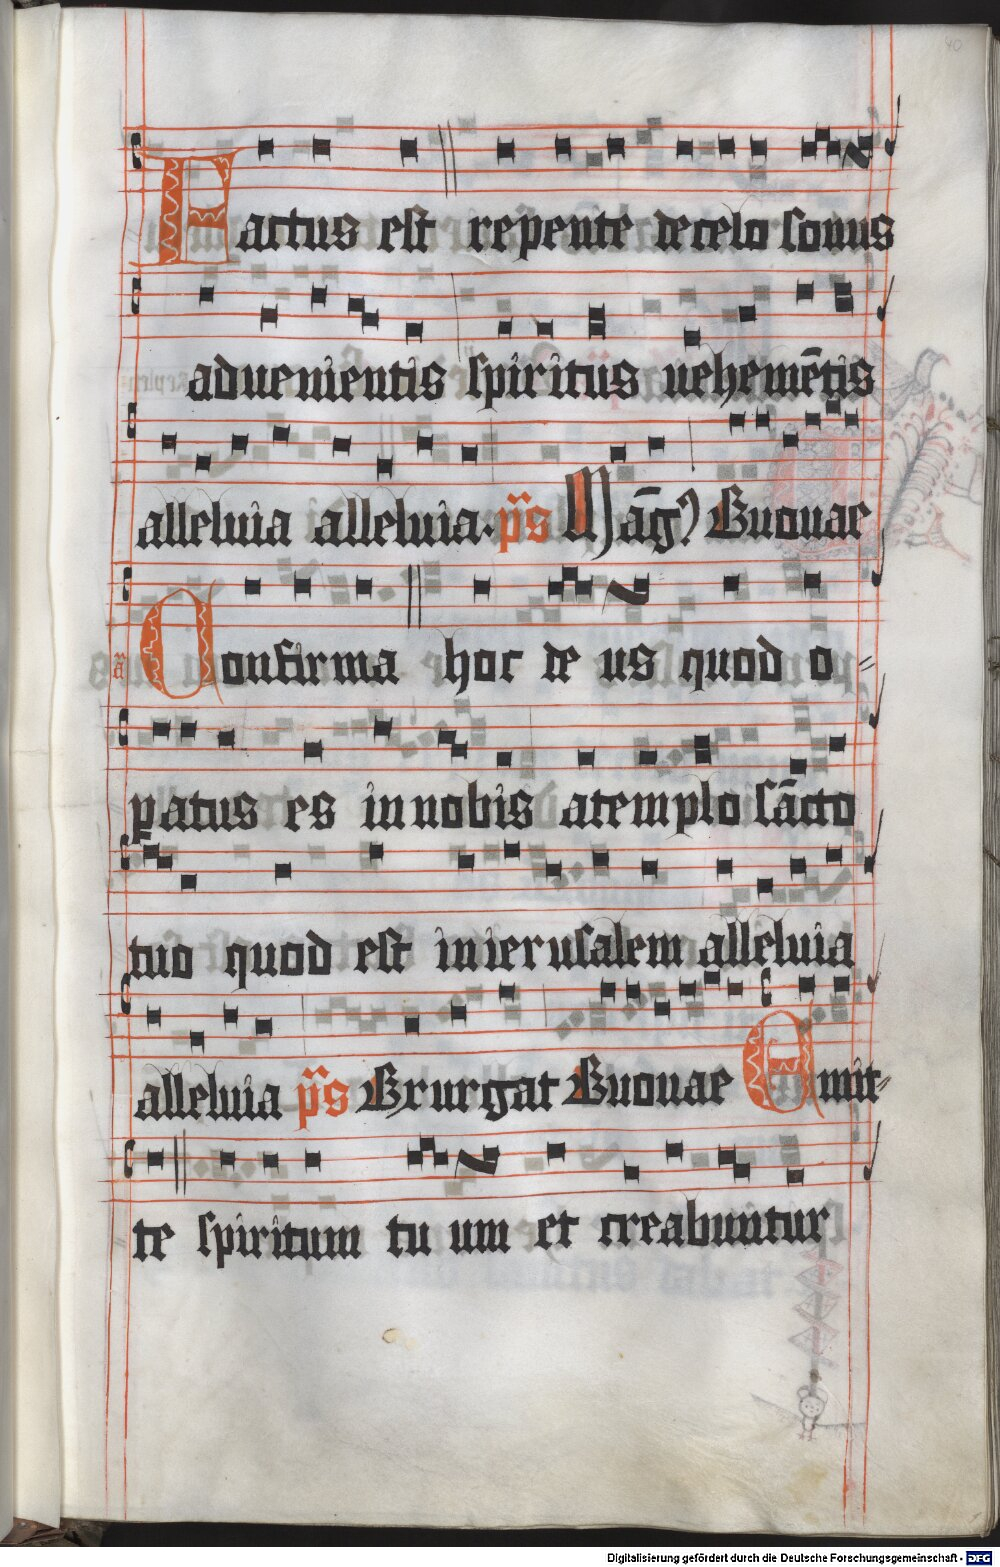 40
Factus est repente de celo sonus
aduenientis spiritus uehemētis
alleluia alleluia. p̄s Māg⁹ Euouae
Confirma hoc de us quod o=
ꝑatus es in nobis a templo sācto
tuo quod est in ierusalem alleluia
alleluia p̄s Exurgat Euouae Emit=
te spiritum tu um et creabuntur
Digitalisierung gefördert durch die Deutsche Forschungsgemeinschaft - DFG